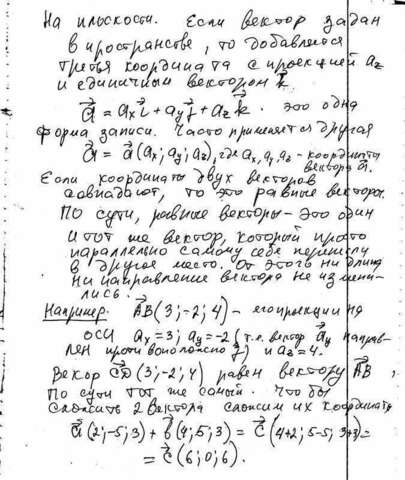 На плоскости. Если вектор задан
в пространстве, то добавляется
третья координата с проекцией a_z
и единичным вектором k⃗.
a⃗ = a_x i⃗ + a_y j⃗ + a_z k⃗. это одна
форма записи. Часто применяется другая
a⃗ = a⃗(a_x; a_y; a_z), где a_x, a_y, a_z - координаты
вектора a⃗.
Если координаты двух векторов
совпадают, то это равные векторы.
По сути, равные векторы - это один
и тот же вектор, который просто
параллельно самому себе перенесли
в другое место. От этого ни длина
ни направление вектора не измени-
лись.
Например. AB⃗(3; -2; 4) - его проекции на
оси a_x = 3; a_y = -2 (т.е. вектор a⃗_y направ-
лен противоположно j⃗) и a_z = 4.
Вектор CD⃗(3; -2; 4) равен вектору AB⃗,
по сути тот же самый. Что бы
сложить 2 вектора сложим их координаты
a⃗(2; -5; 3) + b⃗(4; 5; 3) = c⃗(4+2; 5-5; 3+3) =
= c⃗(6; 0; 6).